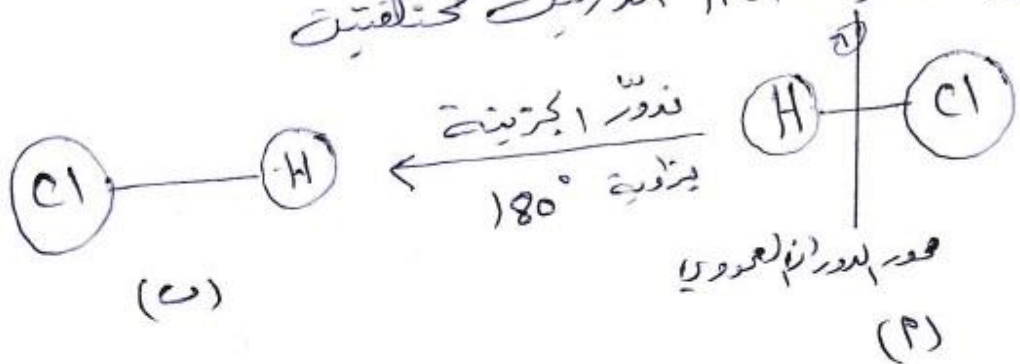 الذرتين مختلفتين
H Cl
ندوّر الجزيئة
بزاوية 180°
Cl H
محور الدوران العمودي
(ب)
(أ)